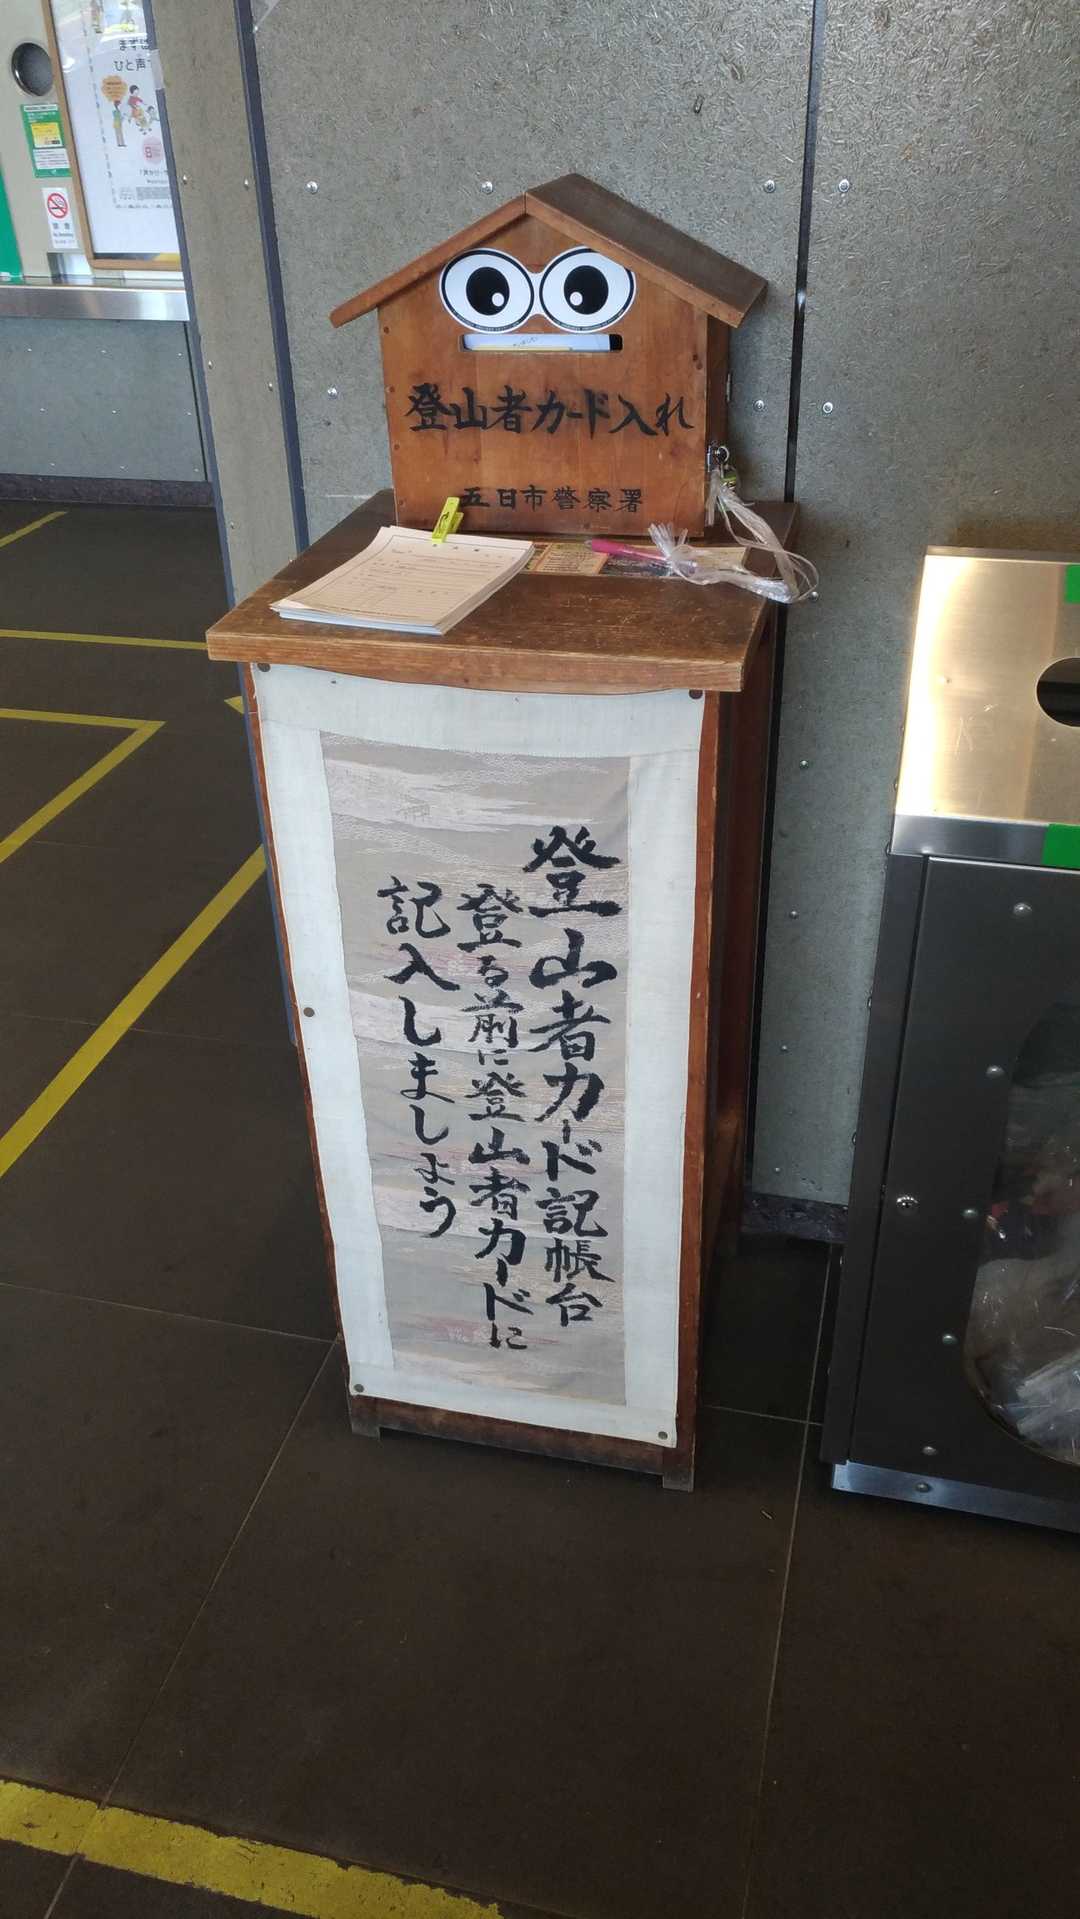 まずは
ひと声
登山者カード入れ
五日市警察署
登山者カード記帳台
登る前に登山者カードに
記入しましょう